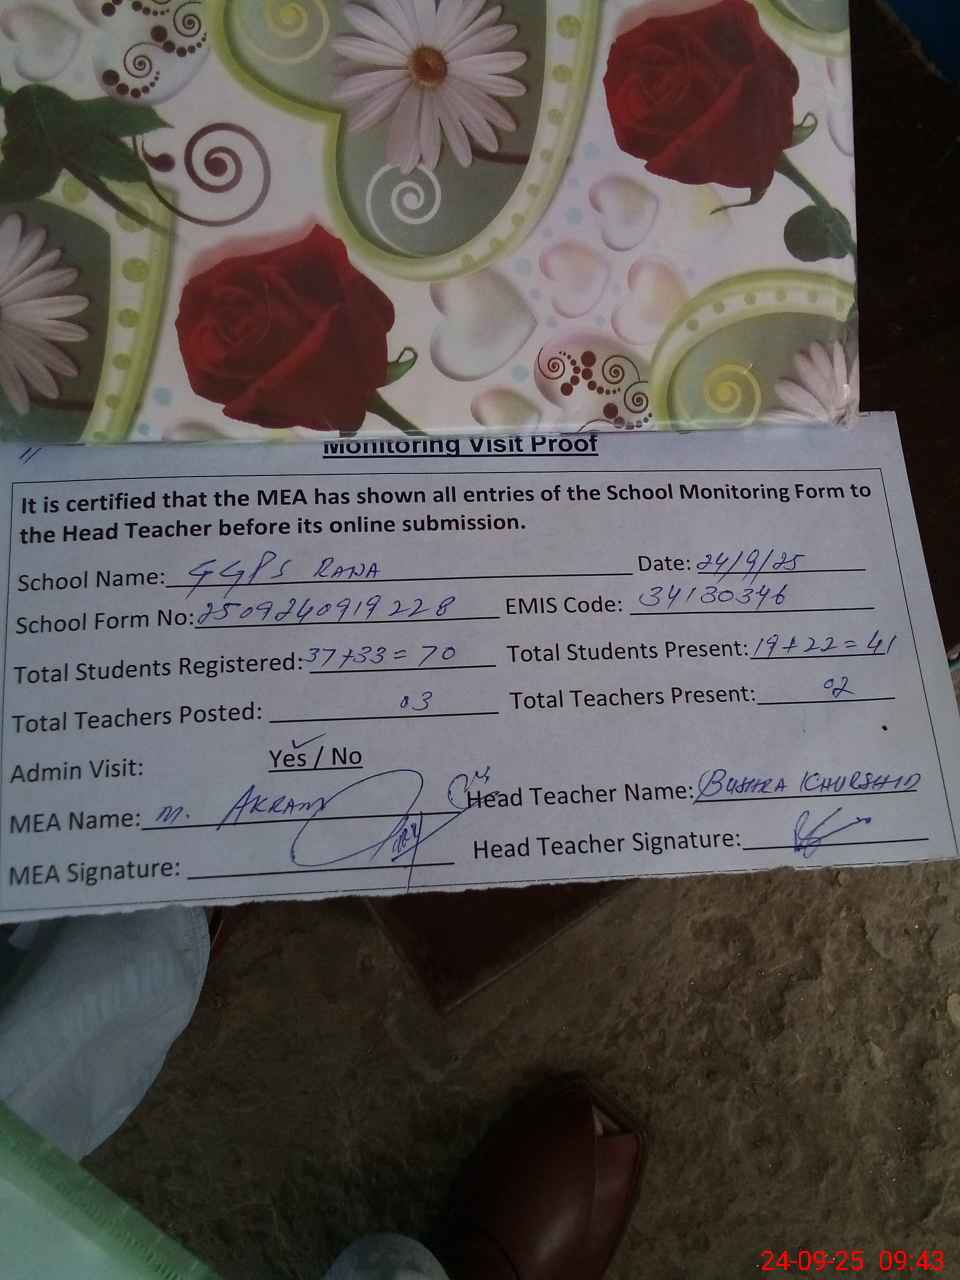 Monitoring Visit Proof
It is certified that the MEA has shown all entries of the School Monitoring Form to
the Head Teacher before its online submission.
School Name: GGPS RANA Date: 24/9/25
School Form No: 250924091922 8 EMIS Code: 34130346
Total Students Registered: 37+33 = 70 Total Students Present: 19+22 = 41
Total Teachers Posted: 03 Total Teachers Present: 02
Admin Visit: Yes / No
MEA Name: M. AKRAM Head Teacher Name: BUSHRA KHURSHID
MEA Signature: Head Teacher Signature:
24-09-25 09:43